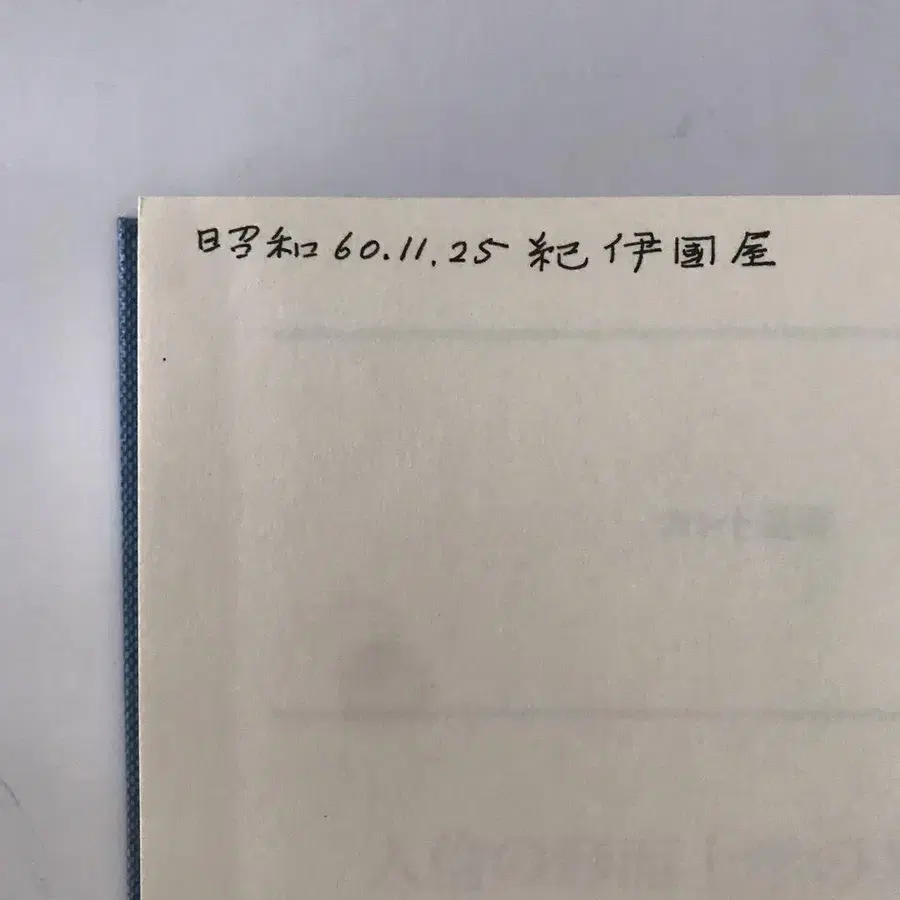 昭和60.11.25 紀伊國屋